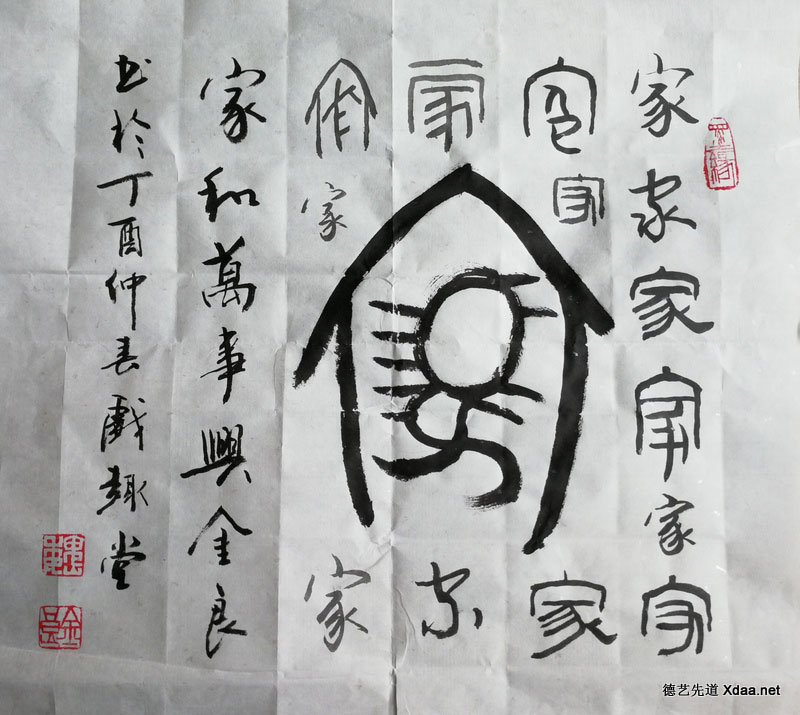 家家家家家家
家家家
家家
家家家
家
家和萬事興金良
书於丁酉仲春戲趣堂
德艺先道 Xdaa.net